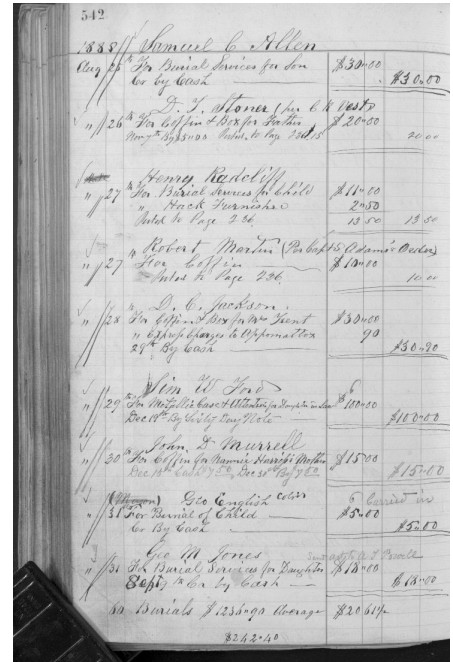 542
1888 Samuel C Allen
Aug 25th For Burial Services for Son $30.00
Cr by Cash $30.00
D. T. Stoner (per C H
" 26th For Coffin & Box for Father $20.00
to Page 236 20 00
Henry Radcliff
" 27th For Burial Services for Child $11.00
" Hack Furnished 2.50
to Page 236 13 50 13 50
Robert Martin (Per Capt S. Adams Order)
" 27 " For Coffin $10.00
to Page 236 10 00
D. C. Jackson
" 28 " For Coffin & Box for Mrs Trent $30.00
" Express Charges to Appomattox 90
29th By Cash $30.90
W Ford
" 29th For Metallic Case & Attention for Daughter in $100.00
Dec 19th By Sixty Day Note $100.00
John D Murrell
" 30th For Coffin for Nannie Harris's Mother $15.00
Dec Cash 7 50, Dec 31st By 7 50 $15.00
Geo English Cold Carried in
" 31st For Burial of Child $5.00
Cr By Cash $5.00
Geo M Jones
" 31 For Burial Services for Daughter $18.00
Sept Cr by Cash $18.00
60 Burials $1236.90 Average $20 61½
$242.40